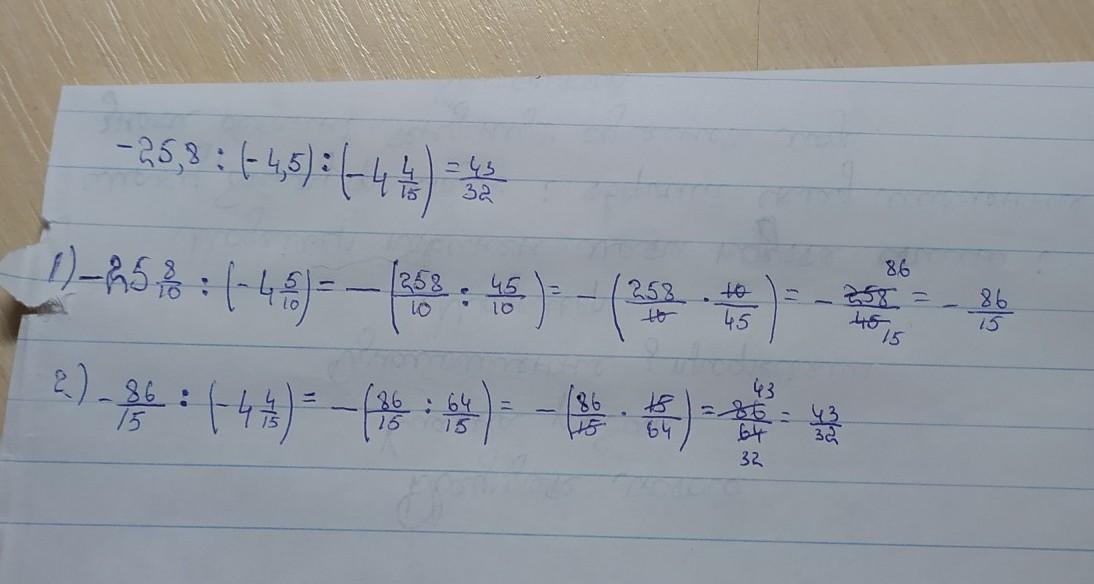 -25,8 : (-4,5) : (-4 4/15) = 43/32
1) -25 8/10 : (-4 5/10) = -(258/10 : 45/10) = -(258/10 · 10/45) = -258/45 86 15 = -86/15
2) -86/15 : (-4 4/15) = -(86/15 : 64/15) = -(86/15 · 15/64) = 86/64 43 32 = 43/32